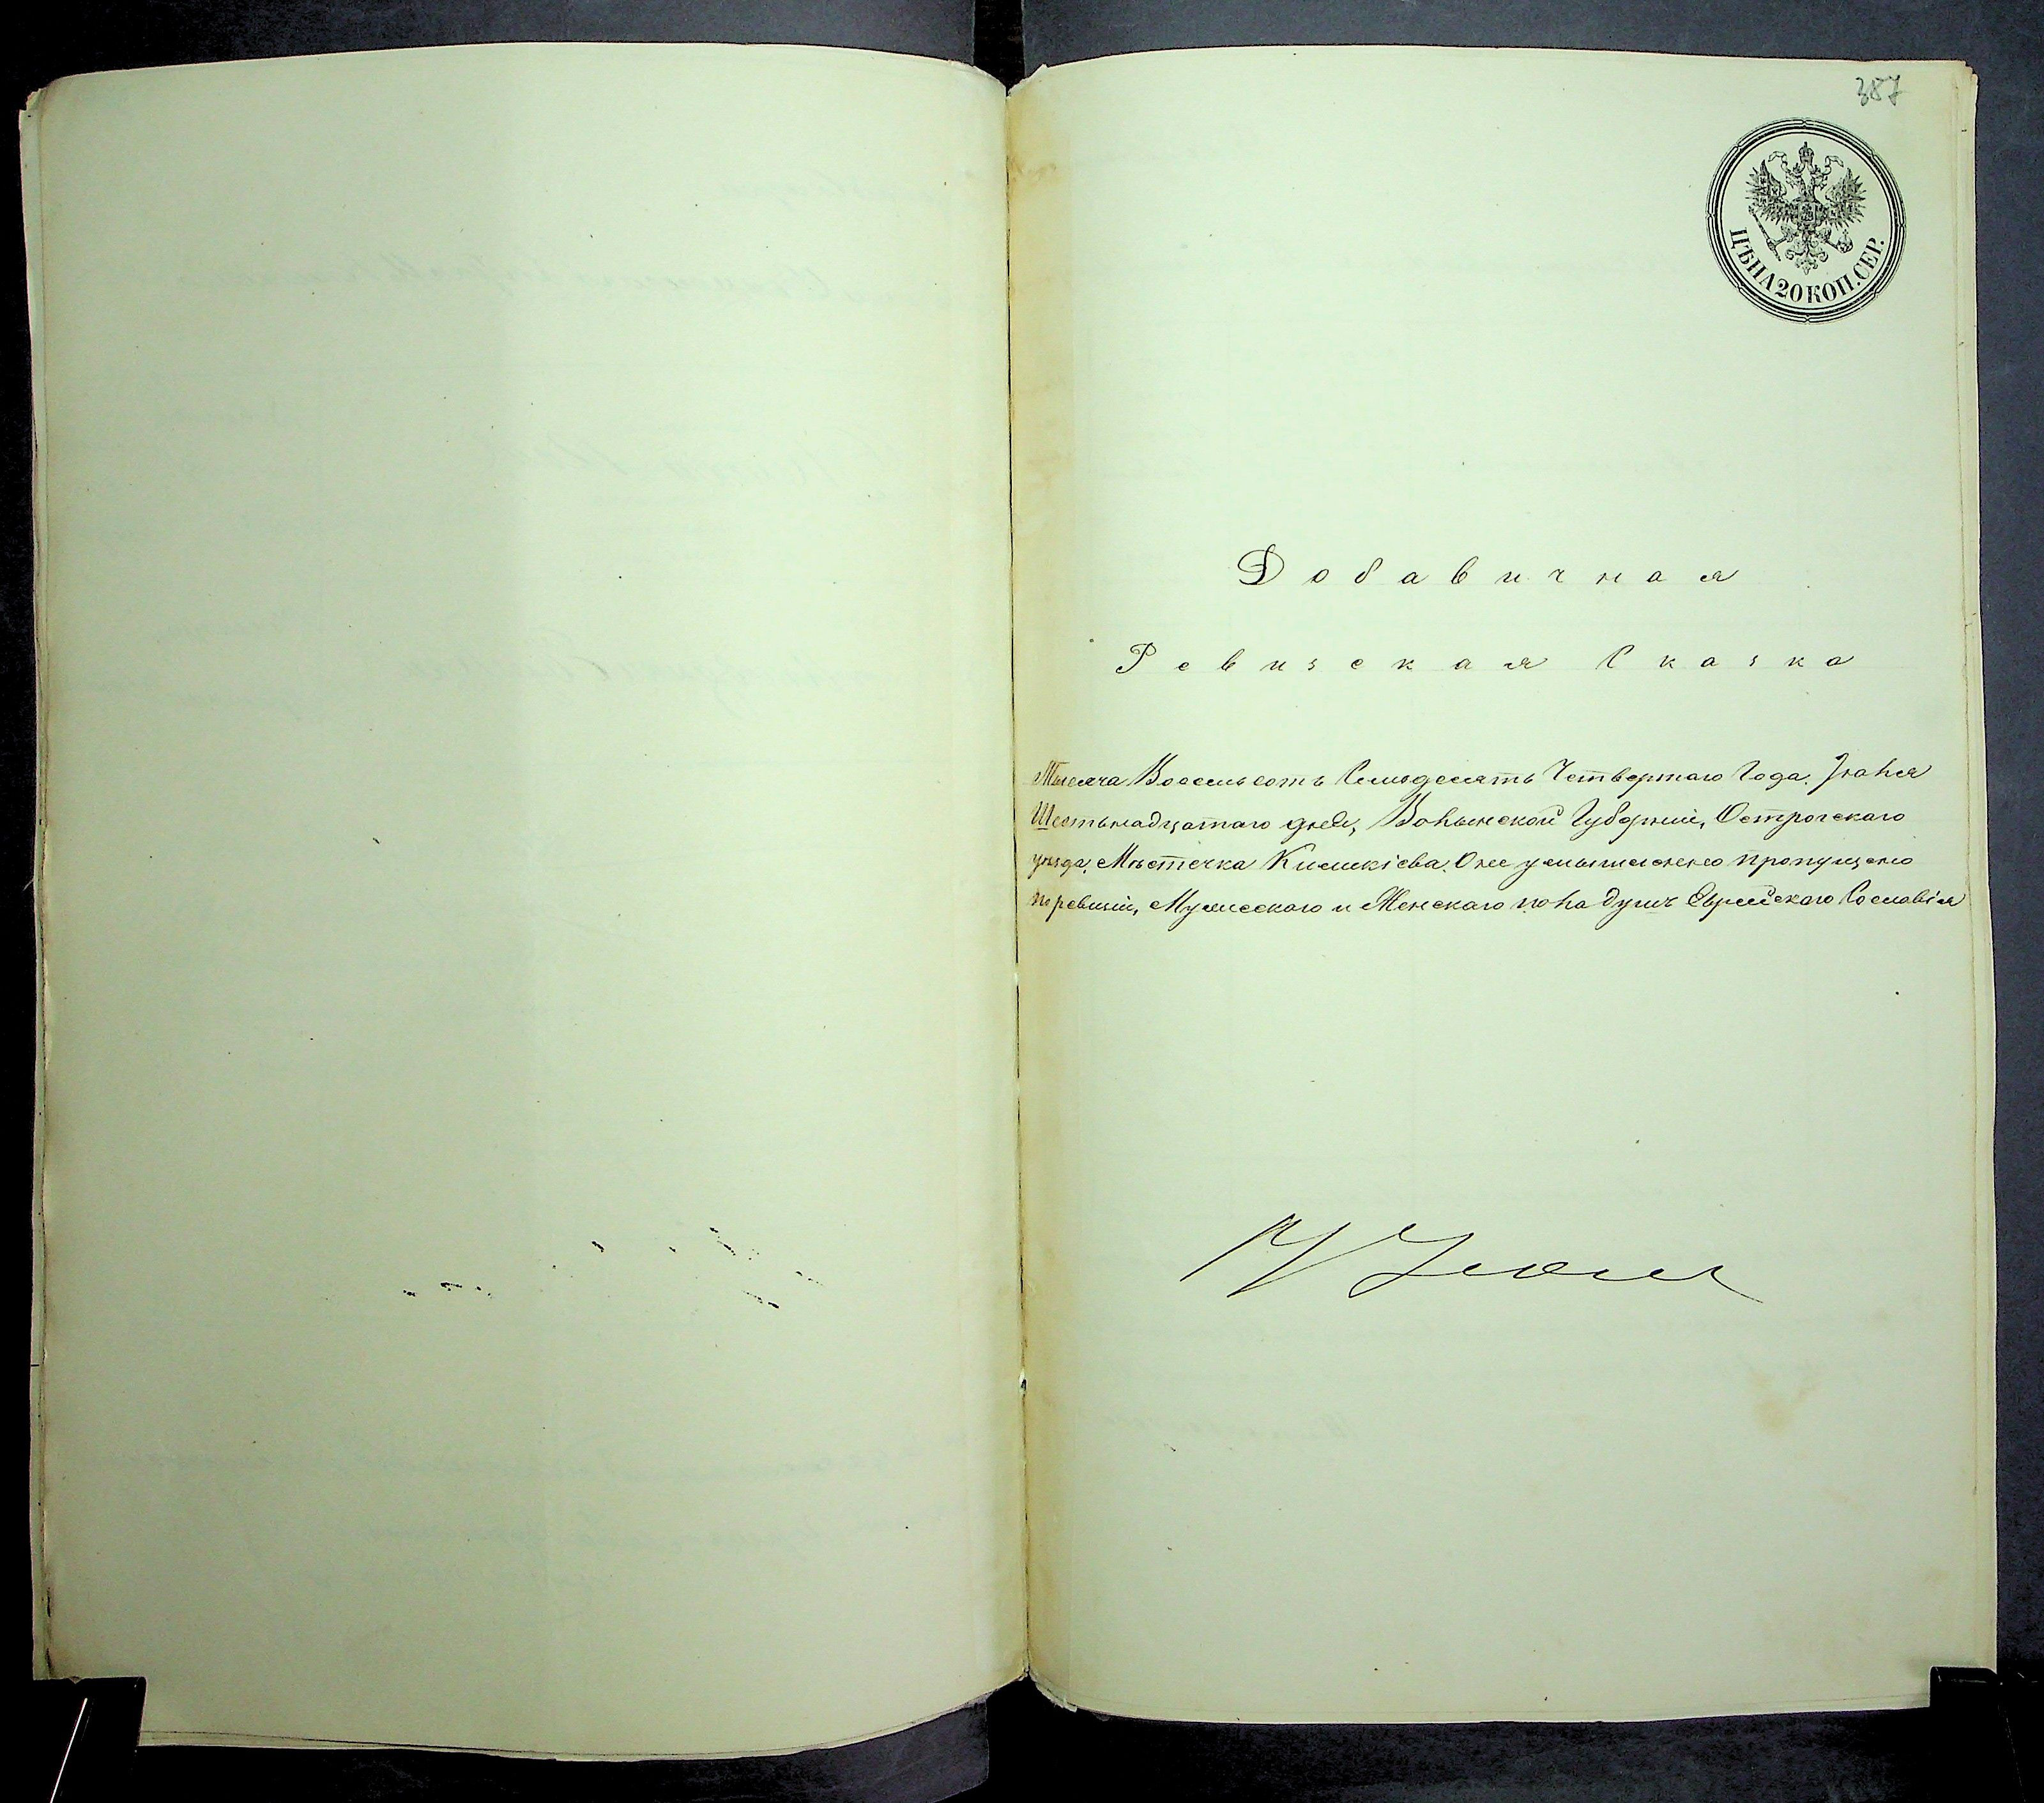 387
ЦѢНА 20 КОП. СЕР.
Добавичная
Ревизская Сказка
Тысяча Восемьсотъ Семьдесятъ Четвертаго Года. Іюня
Шестьнадцатаго дня, Волынской Губерніи, Острогскаго
уѣзда, Мѣстечка Кишкіева. О не умышленно пропущено
по ревизіи, Мужескаго и Женскаго пола душъ Еврейскаго Сословія